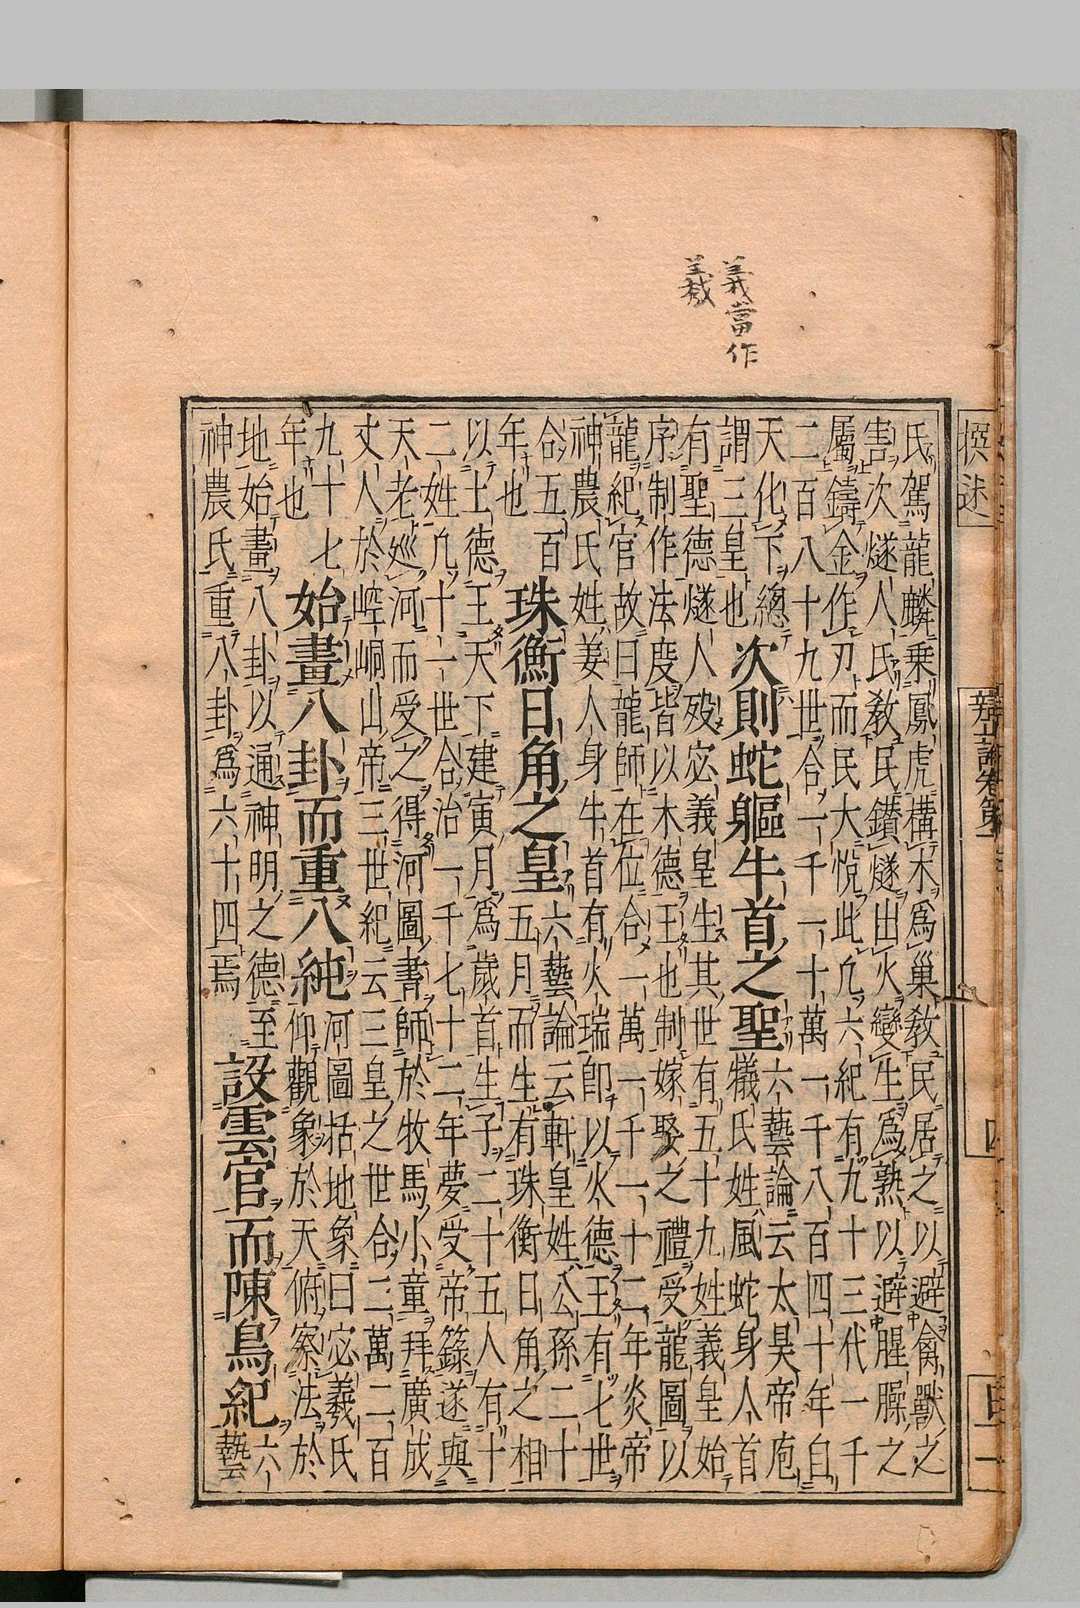 義當作
羲
撰述
氏駕龍麟乗鳳虎構木爲巢教民居之以避禽獸之
害次燧人氏教民鑽燧出火變生爲熟以避腥臊之
屬鑄金作刃而民大悅此凢六紀有九十三代一千
二百八十九世合一千一十萬一千八百四十年自
天化下總
謂三皇也
次則蛇軀牛首之聖
六藝論云太昊帝庖
犧氏姓風蛇身人首
有聖德燧人殁宓義皇生其世有五十九姓義皇始
序制作法度皆以木德王也制嫁娶之禮受龍圖以
龍紀官故曰龍師在位合一萬一千一十二年炎帝
神農氏姓姜人身牛首有火瑞即以火德王有七世
合五百
年也
珠衡日角之皇
六藝論云軒皇姓公孫二十
五月而生有珠衡日角之相
以土德王天下建寅月爲歲首生子二十五人有十
二姓凢十一世合治一千七十二年夢受帝籙遂與
天老廵河而受之得河圖書師於牧馬小童拜廣成
丈人於崆峒山帝三世紀云三皇之世合二萬二百
九十七
年也
始畫八卦而重八純
河圖括地象曰宓羲氏
仰觀象於天俯察法於
地始畫八卦以通神明之德至
神農氏重八卦爲六十四焉
設雲官而陳鳥紀
六
藝